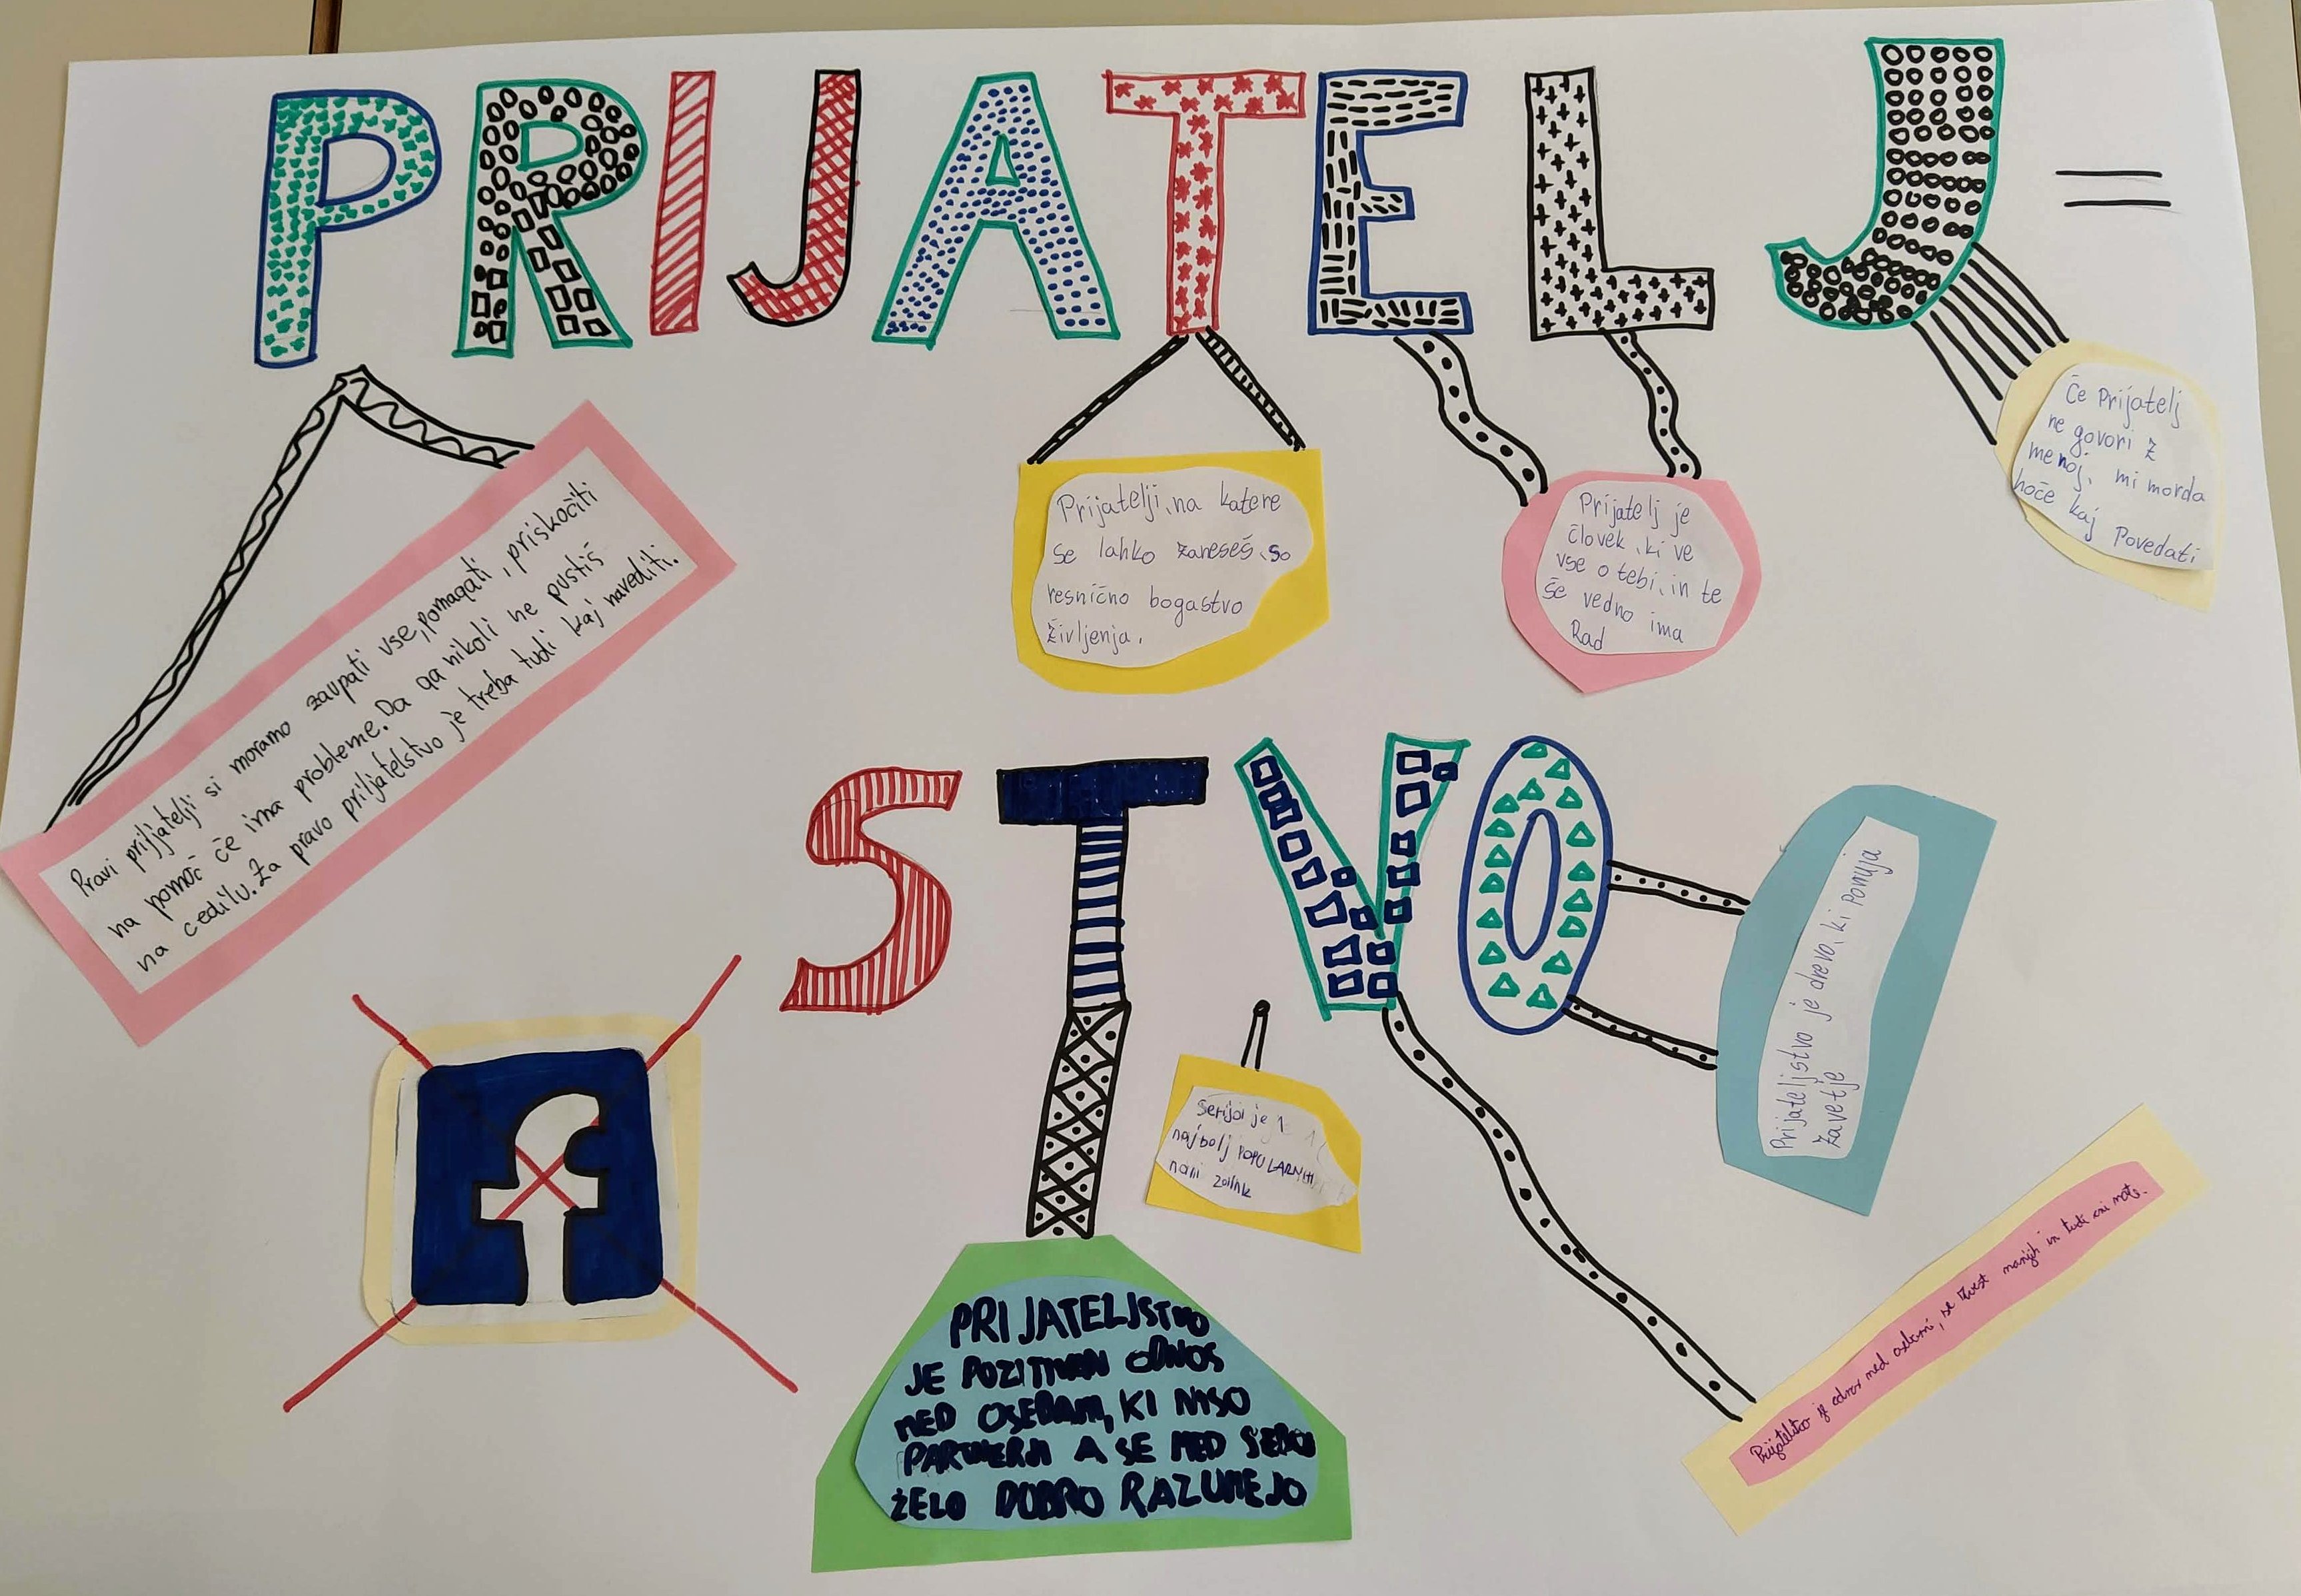 PRIJATELJ =
Pravi priljatelji si moramo zaupati vse, pomagati, priskočiti
na pomoč če ima probleme. Da ga nikoli ne pustiš
na cedilu. Za pravo priljatelstvo je treba tudi kaj narediti.
Prijatelji, na katere
se lahko zaneseš, so
resnično bogastvo
življenja.
Prijatelj je
človek, ki ve
vse o tebi, in te
še vedno ima
Rad
Če Prijatelj
ne govori z
menoj, mi morda
hoče kaj Povedati
STVO
Prijateljstvo je drevo, ki
zavetje
f
Serija je
najbolj POPULARNIH
PRIJATELJSTVO
JE POZITIVEN ODNOS
MED OSEBAMI, KI NISO
PARTNERJI A SE MED SEBOJ
ŽELO DOBRO RAZUMEJO
Prijatelstvo je odnos med osebami, se